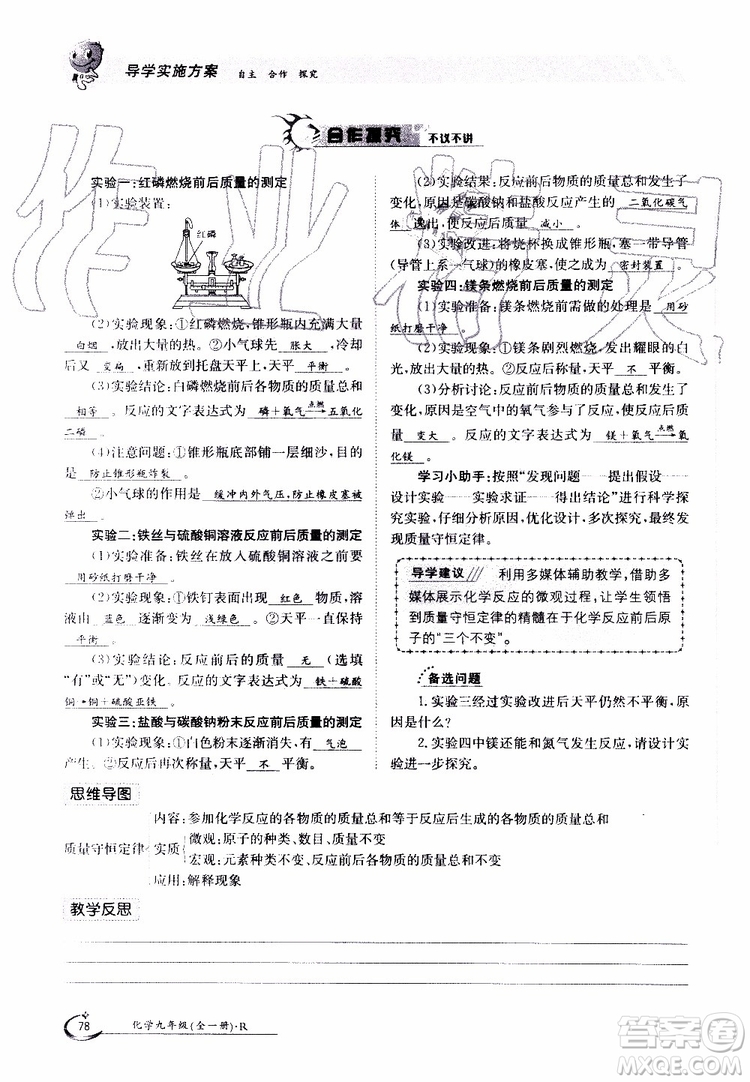 导学实施方案 自主 合作 探究
合作探究 不议不讲
实验一:红磷燃烧前后质量的测定
(1)实验装置:
红磷
(2)实验现象:①红磷燃烧,锥形瓶内充满大量
白烟,放出大量的热。②小气球先 胀大,冷却
后又 变瘪,重新放到托盘天平上,天平 平衡。
(3)实验结论:白磷燃烧前后各物质的质量总和
相等。反应的文字表达式为 磷+氧气 点燃→ 五氧化
二磷。
(4)注意问题:①锥形瓶底部铺一层细沙,目的
是 防止锥形瓶炸裂。
②小气球的作用是 缓冲内外气压,防止橡皮塞被
弹出。
实验二:铁丝与硫酸铜溶液反应前后质量的测定
(1)实验准备:铁丝在放入硫酸铜溶液之前要
用砂纸打磨干净。
(2)实验现象:①铁钉表面出现 红色 物质,溶
液由 蓝色 逐渐变为 浅绿色。②天平一直保持
平衡。
(3)实验结论:反应前后的质量 无 (选填
“有”或“无”)变化。反应的文字表达式为 铁+硫酸
铜→铜+硫酸亚铁。
实验三:盐酸与碳酸钠粉末反应前后质量的测定
(1)实验现象:①白色粉末逐渐消失,有 气泡
产生。②反应进行一段时间后,天平 不 平衡。
(2)实验结果:反应前后物质的质量总和发生了
变化,原因是碳酸钠和盐酸反应产生的 二氧化碳气
体 逸出,使反应后的质量 减小。
(3)实验改进:将烧杯换成锥形瓶,塞一带导管
(导管上系一气球)的橡皮塞,使之成为 密封装置。
实验四:镁条燃烧前后质量的测定
(1)实验准备:镁条燃烧前需做的处理是 用砂
纸打磨干净。
(2)实验现象:①镁条剧烈燃烧,发出耀眼的白
光,放出大量的热。②天平 不 平衡。
(3)分析讨论:反应前后物质的质量总和发生了
变化,原因是空气中的氧气参与了反应,使反应后的质
量 变大。反应的文字表达式为 镁+氧气 点燃→ 氧
化镁。
学习小助手:按照“发现问题——提出假设——
设计实验——实验求证——得出结论”进行科学探
究实验,仔细分析原因,优化设计,多次实验,发现了质
量守恒定律。
导学建议 利用多媒体辅助教学,借助多
媒体展示化学反应的微观过程,让学生领悟
到质量守恒定律的精髓在于化学反应前后原
子的“三个不变”。
备选问题
1.实验三经过实验改进后天平仍然不平衡,可能
原因是什么?
2.实验四中镁还能和氮气发生反应,可否用实验
进一步探究。
思维导图
内容:参加化学反应的各物质的质量总和等于反应后生成的各物质的质量总和
质量守恒定律 实质 微观:原子的种类、数目、质量不变
宏观:元素种类不变、反应前后物质的质量总和不变
应用:解释现象
教学反思
78 化学九年级(全一册)·R
作业精灵
答案圈
MXQE.COM